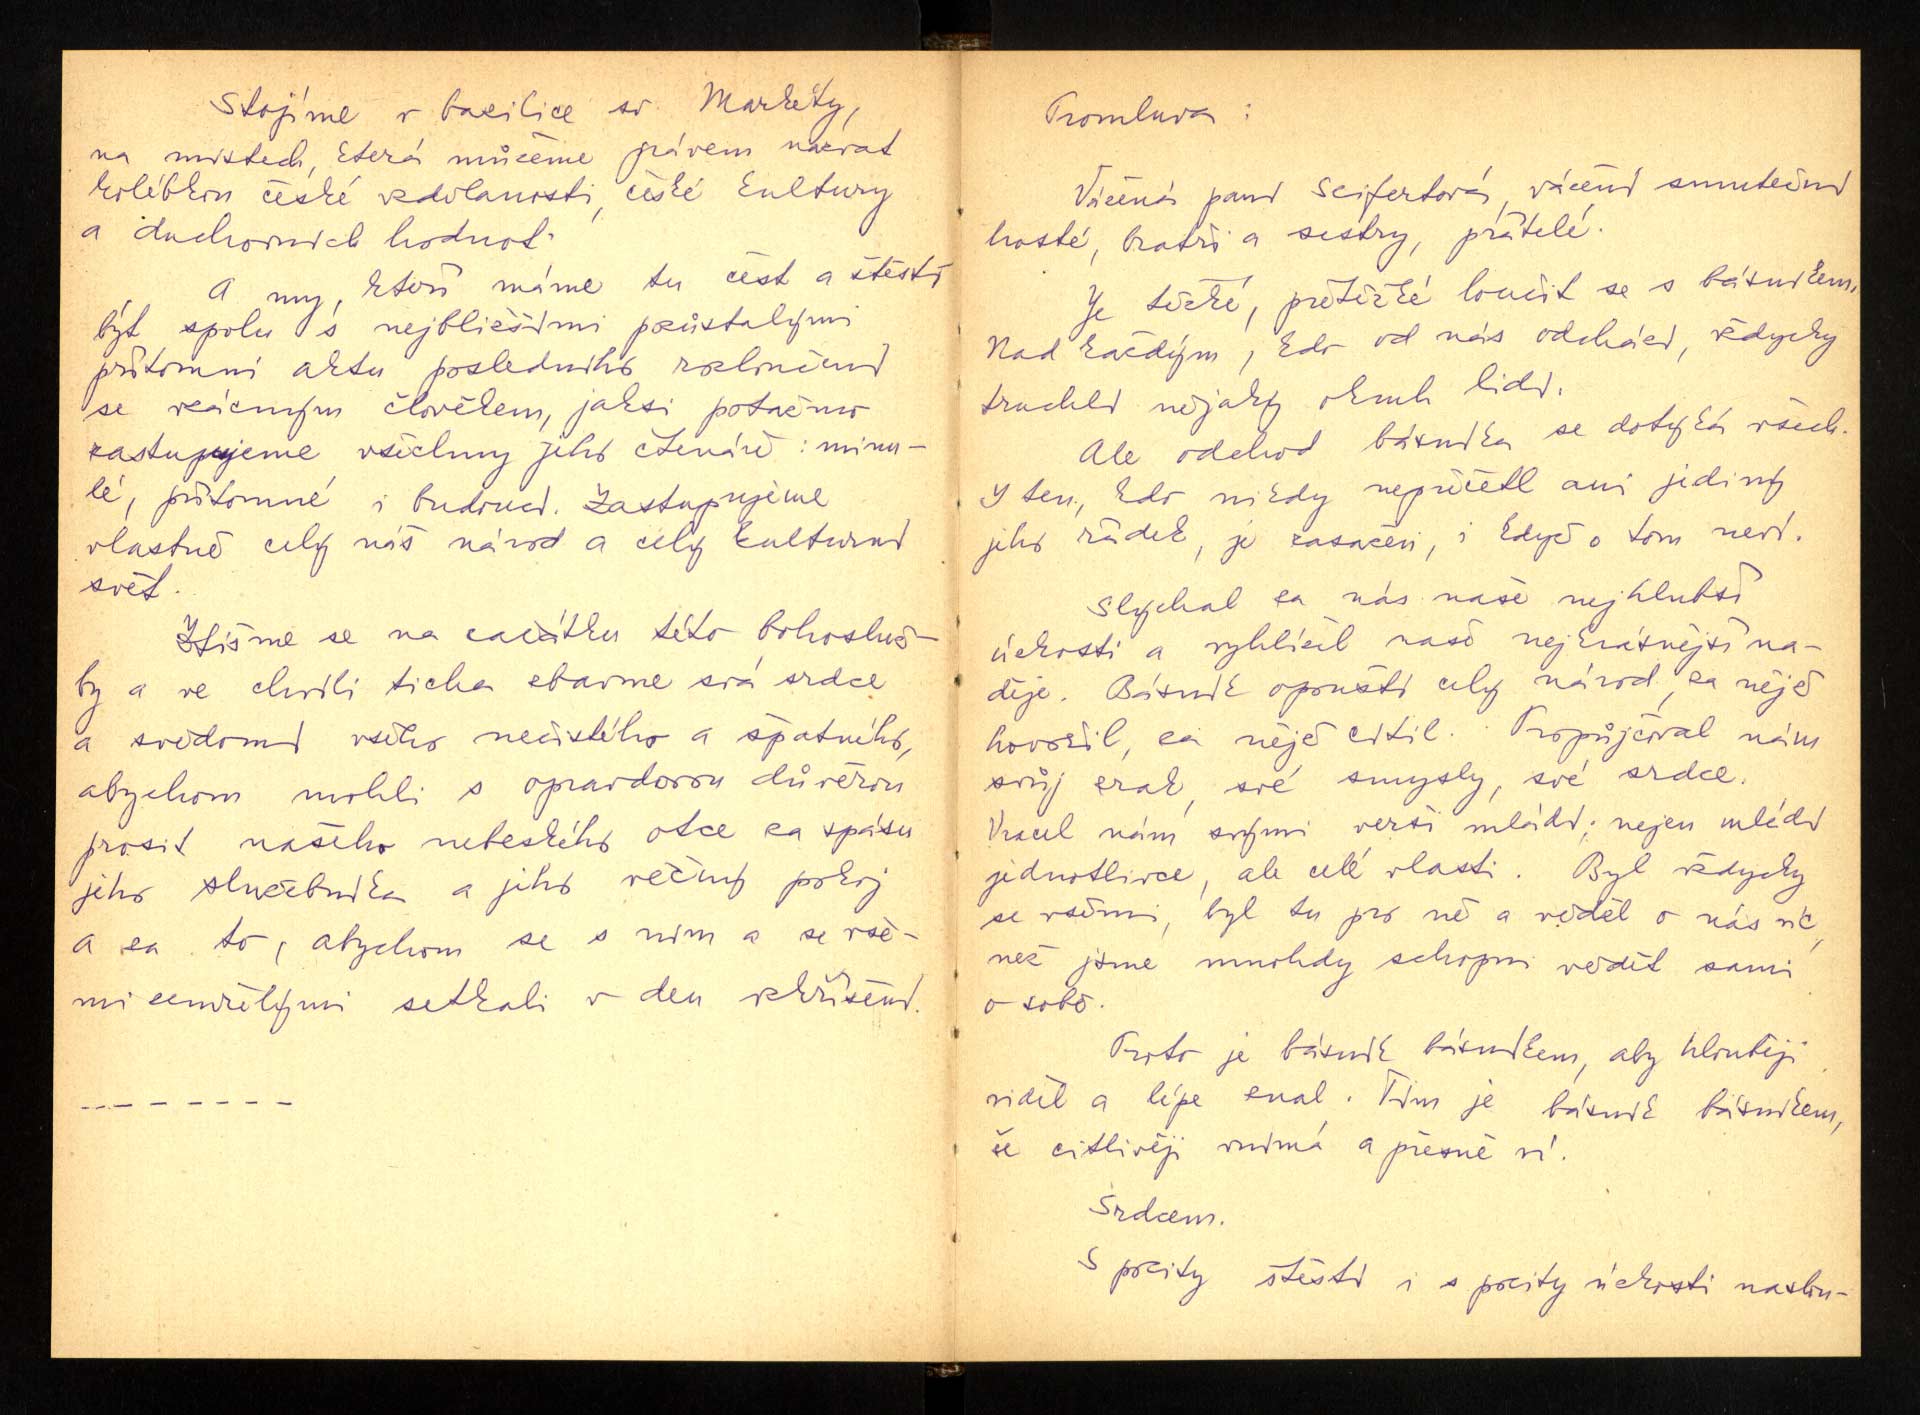 Stojíme v bazilice sv. Markéty,
na místech, která můžeme právem nazvat
kolébkou české vzdělanosti, české kultury
a duchovních hodnot.
A my, kteří máme tu čest a štěstí
být spolu s nejbližšími pozůstalými
přítomni aktu posledního rozloučení
se vzácným člověkem, jaksi potažmo
zastupujeme všechny jeho čtenáře: minu-
lé, přítomné i budoucí. Zastupujeme
vlastně celý náš národ a celý kulturní
svět.
Ztišme se na začátku této bohosluž-
by a ve chvíli ticha zbavme svá srdce
a svědomí všeho nečistého a špatného,
abychom mohli s opravdovou důvěrou
prosit našeho nebeského otce za spásu
jeho služebníka a jeho věčný pokoj
a za to, abychom se s ním a se vše-
mi zemřelými setkali v den vzkříšení.
Promluva:
Vážená paní Seifertová, vážení smuteční
hosté, bratři a sestry, přátelé.
Je těžké, přetěžké loučit se s básníkem.
Nad každým, kdo od nás odchází, vždycky
truchlí nějaký okruh lidí.
Ale odchod básníka se dotýká všech.
I ten, kdo nikdy nepřečetl ani jediný
jeho řádek, je zasažen, i když o tom neví.
Slýchal za nás naše nejhlubší
úzkosti a vyhlížel naše nejkrásnější na-
děje. Básník opouští celý národ, za nějž
hovořil, za nějž cítil. Propůjčoval nám
svůj zrak, své smysly, své srdce.
Vracel nám svými verši mládí; nejen mládí
jednotlivce, ale celé vlasti. Byl vždycky
se všemi, byl tu pro ně a věděl o nás víc,
než jsme mnohdy schopni vědět sami
o sobě.
Proto je básník básníkem, aby hlouběji
viděl a lépe znal. Tím je básník básníkem,
že citlivěji vnímá a přesně ví.
Srdcem.
S pocity štěstí i s pocity úzkosti naslou-